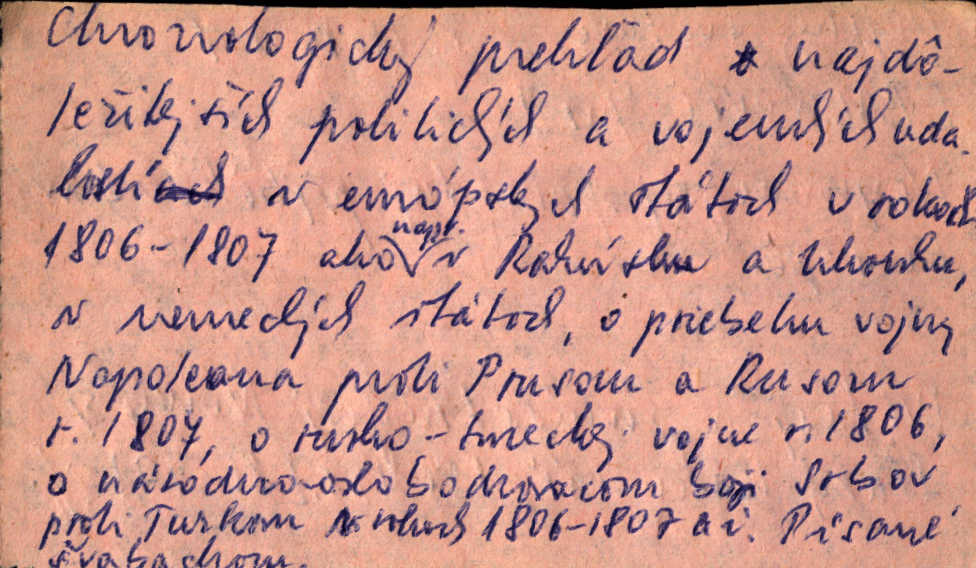 Chronologický prehľad najdô-
ležitejších politických a vojenských uda-
lostí v európskych štátoch v rokoch
1806-1807 ako napr. v Rakúsku a Uhorsku,
v nemeckých štátoch, o priebehu vojny
Napoleona proti Prusom a Rusom
r. 1807, o rusko-tureckej vojne r. 1806,
o národnooslobodzovacom boji Srbov
proti Turkom v rokoch 1806-1807 a i. Písané
švabachom.